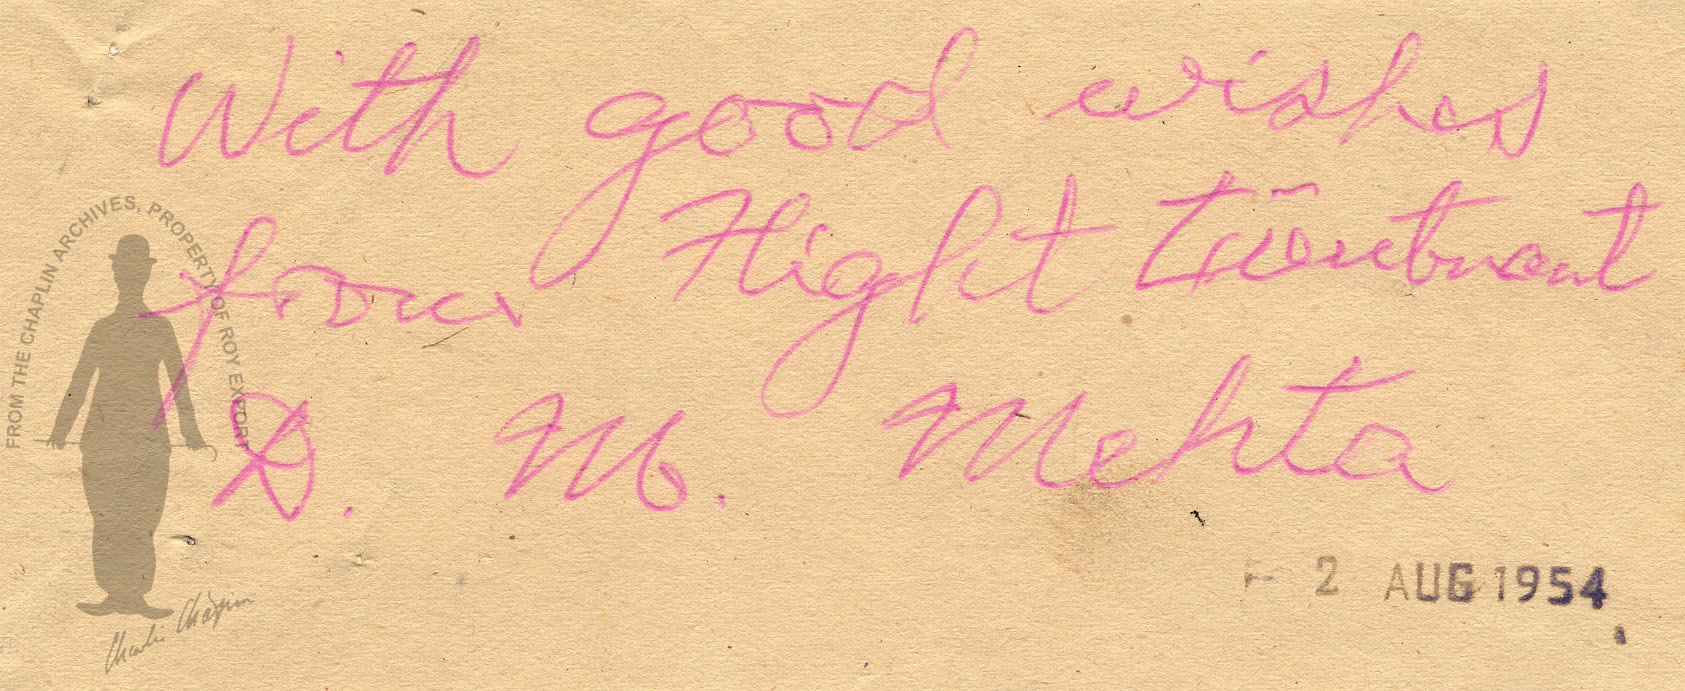 With good wishes
from Flight Lieutenant
D. M. Mehta
2 AUG 1954
FROM THE CHAPLIN ARCHIVES, PROPERTY OF ROY EXPORT
Charlie Chaplin